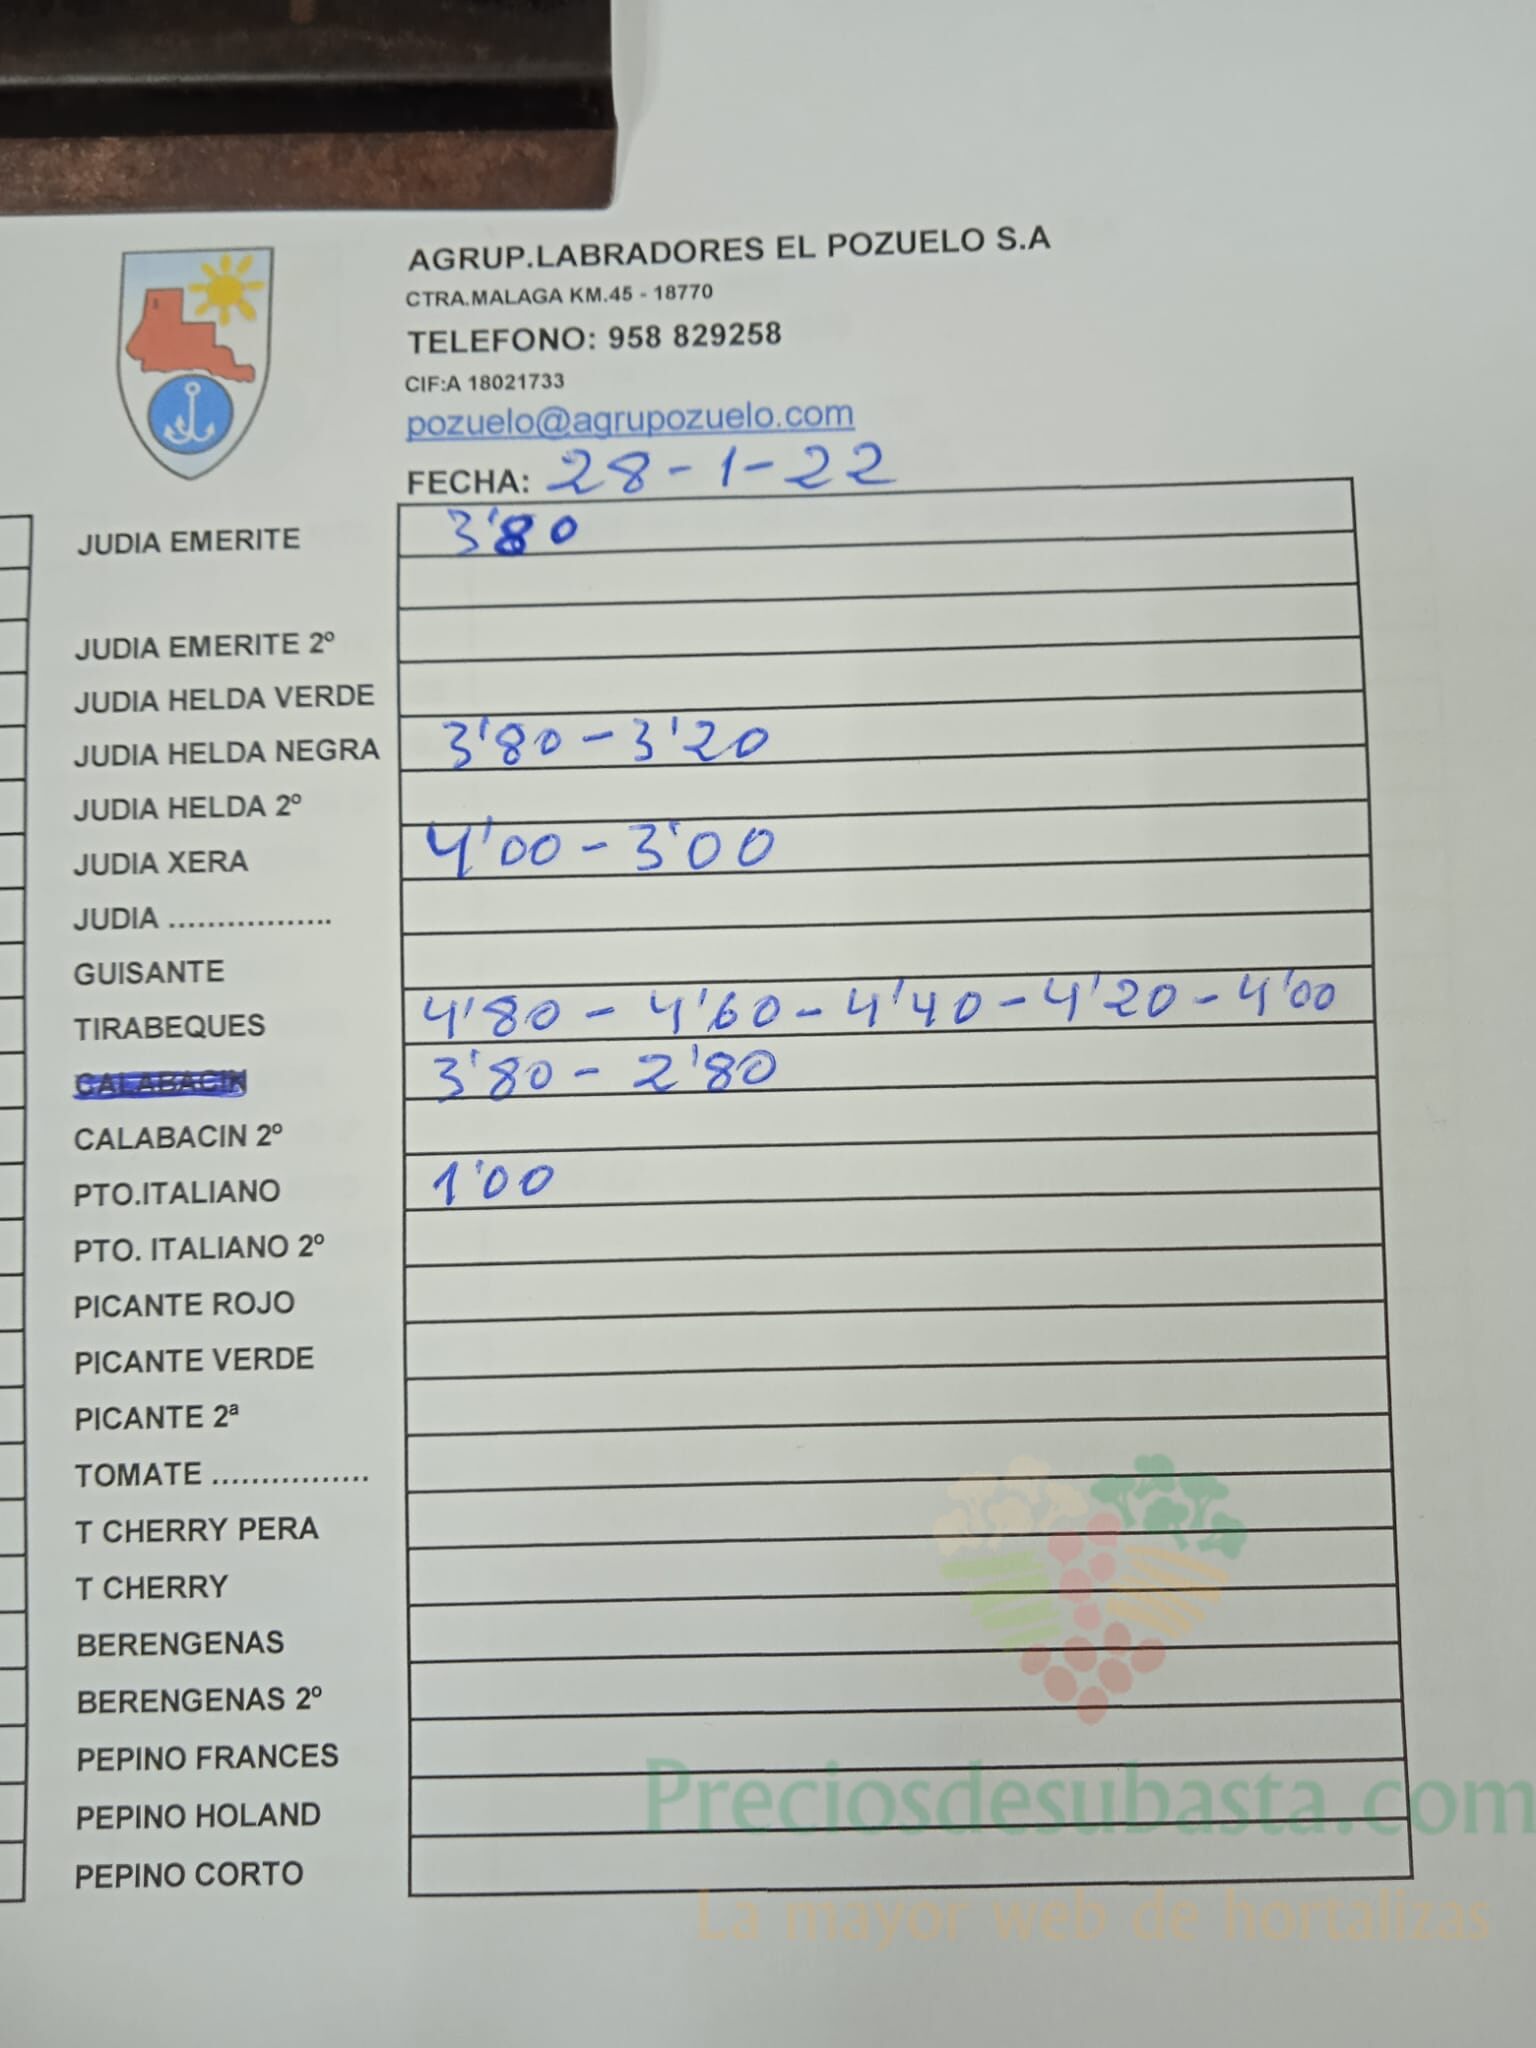 AGRUP.LABRADORES EL POZUELO S.A
CTRA.MALAGA KM.45 - 18770
TELEFONO: 958 829258
CIF:A 18021733
pozuelo@agrupozuelo.com
FECHA: 28-1-22
JUDIA EMERITE 3'80
JUDIA EMERITE 2º
JUDIA HELDA VERDE
JUDIA HELDA NEGRA 3'80 - 3'20
JUDIA HELDA 2º
JUDIA XERA 4'00 - 3'00
JUDIA .................
GUISANTE
TIRABEQUES 4'80 - 4'60 - 4'40 - 4'20 - 4'00
CALABACIN 3'80 - 2'80
CALABACIN 2º
PTO.ITALIANO 1'00
PTO. ITALIANO 2º
PICANTE ROJO
PICANTE VERDE
PICANTE 2ª
TOMATE ................
T CHERRY PERA
T CHERRY
BERENGENAS
BERENGENAS 2º
PEPINO FRANCES
PEPINO HOLAND
PEPINO CORTO
Preciosdesubasta.com
La mayor web de hortalizas